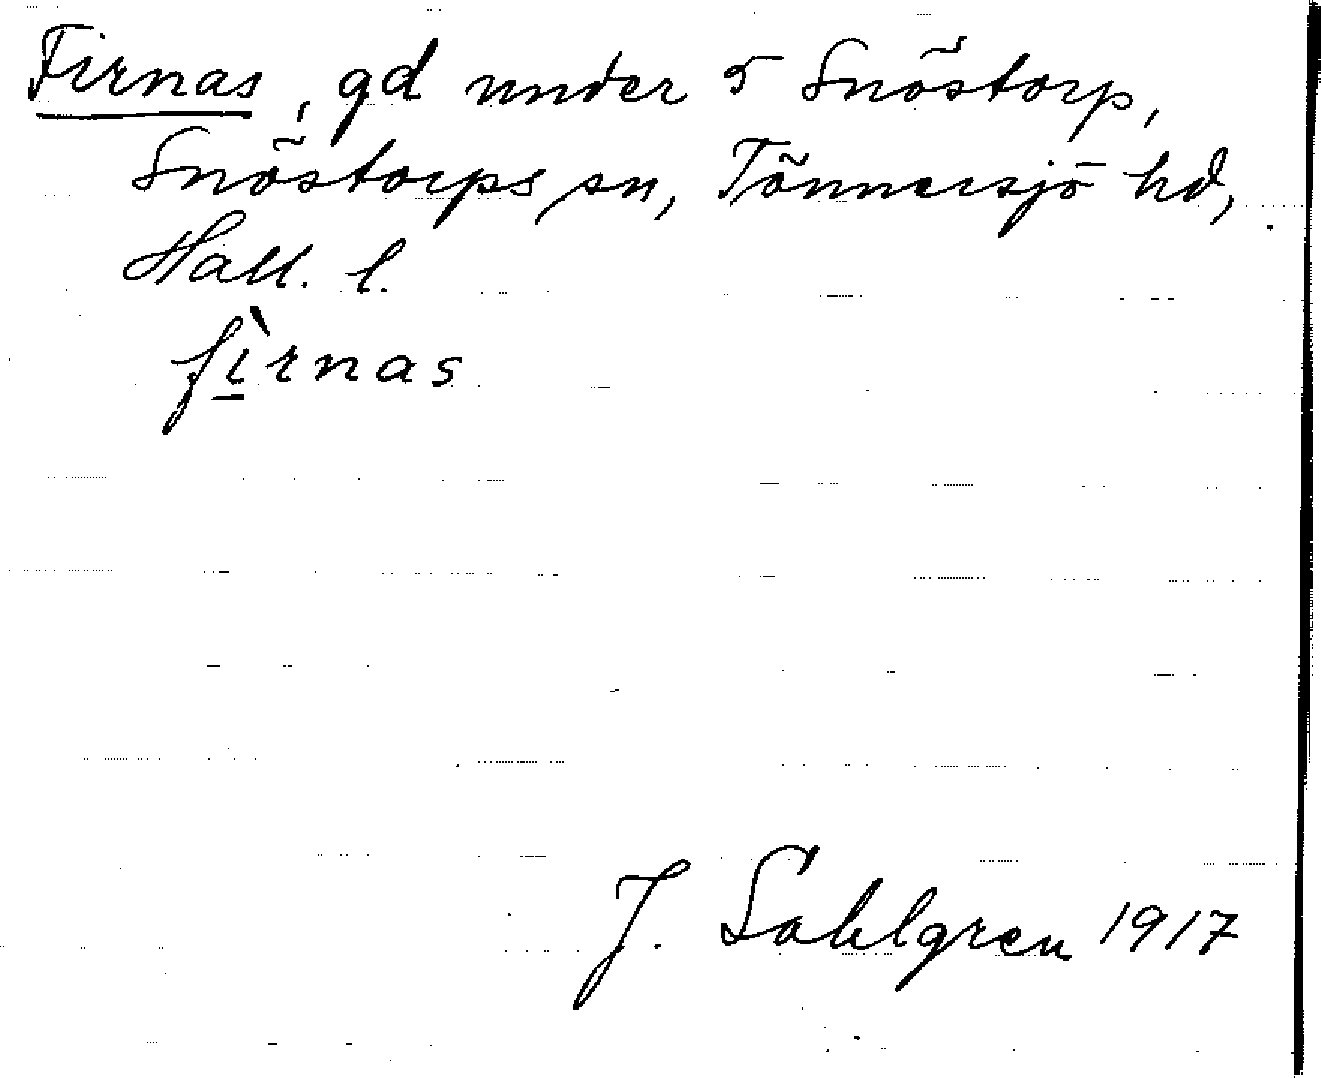 Firnas, gd under 5 Snöstorp,
Snöstorps sn, Tönnersjö hd,
Hall. l.
fìrnas
J. Sahlgren 1917